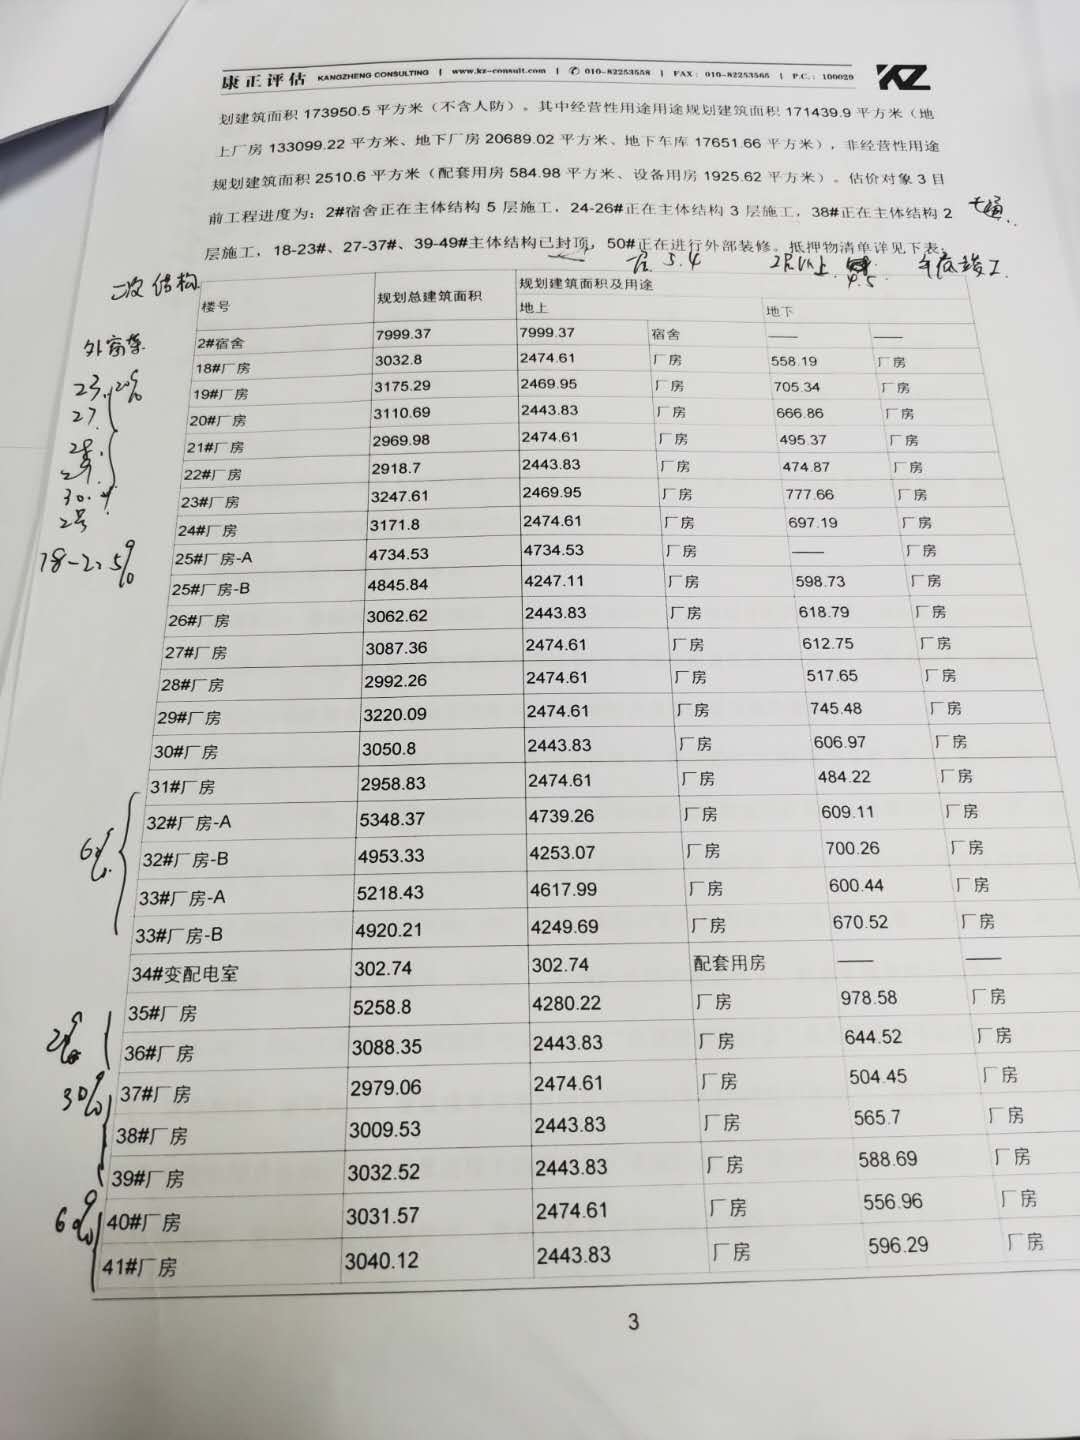 康正评估 KANGZHENG CONSULTING | www.kz-consult.com | ✆ 010-82253558 | FAX: 010-82253565 | P.C.: 100029 KZ
划建筑面积 173950.5 平方米（不含人防）。其中经营性用途用途规划建筑面积 171439.9 平方米（地
上厂房 133099.22 平方米、地下厂房 20689.02 平方米、地下车库 17651.66 平方米），非经营性用途
规划建筑面积 2510.6 平方米（配套用房 584.98 平方米、设备用房 1925.62 平方米）。估价对象 3 目
前工程进度为：2#宿舍正在主体结构 5 层施工，24-26#正在主体结构 3 层施工，38#正在主体结构 2
层施工，18-23#、27-37#、39-49#主体结构已封顶，50#正在进行外部装修。抵押物清单详见下表：
二次结构
5.4
4.5
年底竣工
楼号 规划总建筑面积 规划建筑面积及用途
地上 地下
2#宿舍 7999.37 7999.37 宿舍 —— ——
18#厂房 3032.8 2474.61 厂房 558.19 厂房
19#厂房 3175.29 2469.95 厂房 705.34 厂房
20#厂房 3110.69 2443.83 厂房 666.86 厂房
21#厂房 2969.98 2474.61 厂房 495.37 厂房
22#厂房 2918.7 2443.83 厂房 474.87 厂房
23#厂房 3247.61 2469.95 厂房 777.66 厂房
24#厂房 3171.8 2474.61 厂房 697.19 厂房
25#厂房-A 4734.53 4734.53 厂房 —— 厂房
25#厂房-B 4845.84 4247.11 厂房 598.73 厂房
26#厂房 3062.62 2443.83 厂房 618.79 厂房
27#厂房 3087.36 2474.61 厂房 612.75 厂房
28#厂房 2992.26 2474.61 厂房 517.65 厂房
29#厂房 3220.09 2474.61 厂房 745.48 厂房
30#厂房 3050.8 2443.83 厂房 606.97 厂房
31#厂房 2958.83 2474.61 厂房 484.22 厂房
32#厂房-A 5348.37 4739.26 厂房 609.11 厂房
32#厂房-B 4953.33 4253.07 厂房 700.26 厂房
33#厂房-A 5218.43 4617.99 厂房 600.44 厂房
33#厂房-B 4920.21 4249.69 厂房 670.52 厂房
34#变配电室 302.74 302.74 配套用房 —— ——
35#厂房 5258.8 4280.22 厂房 978.58 厂房
36#厂房 3088.35 2443.83 厂房 644.52 厂房
37#厂房 2979.06 2474.61 厂房 504.45 厂房
38#厂房 3009.53 2443.83 厂房 565.7 厂房
39#厂房 3032.52 2443.83 厂房 588.69 厂房
40#厂房 3031.57 2474.61 厂房 556.96 厂房
41#厂房 3040.12 2443.83 厂房 596.29 厂房
23. 20%
27.
30.
2号
60%
20%
30%
60%
3